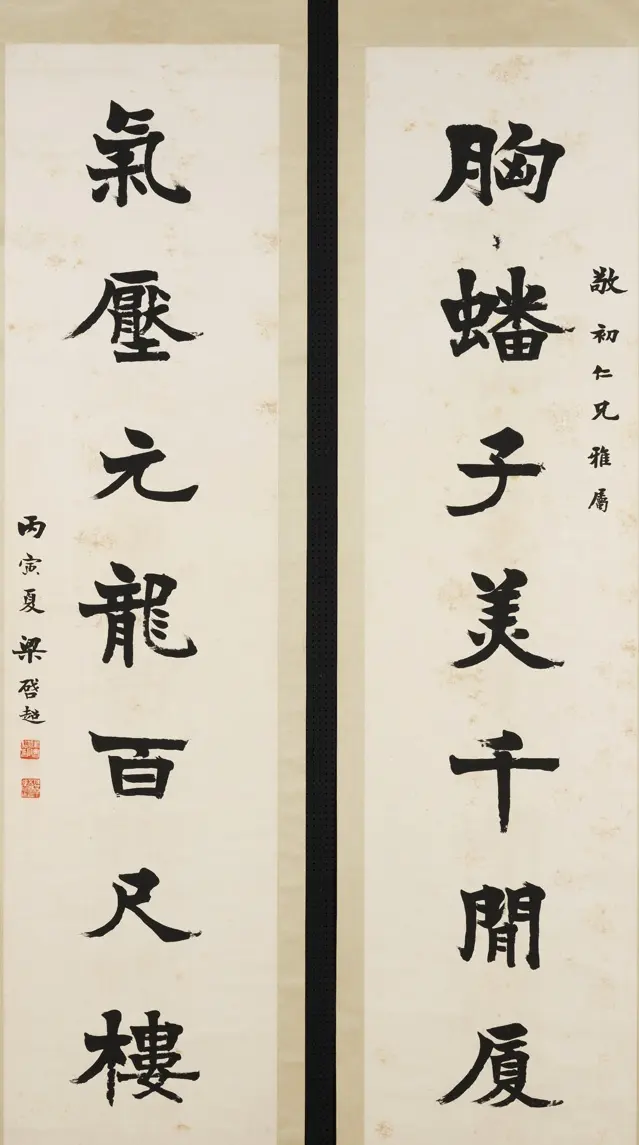 敬初仁兄雅屬
胸蟠子美千閒厦
氣壓元龍百尺樓
丙寅夏梁啓超